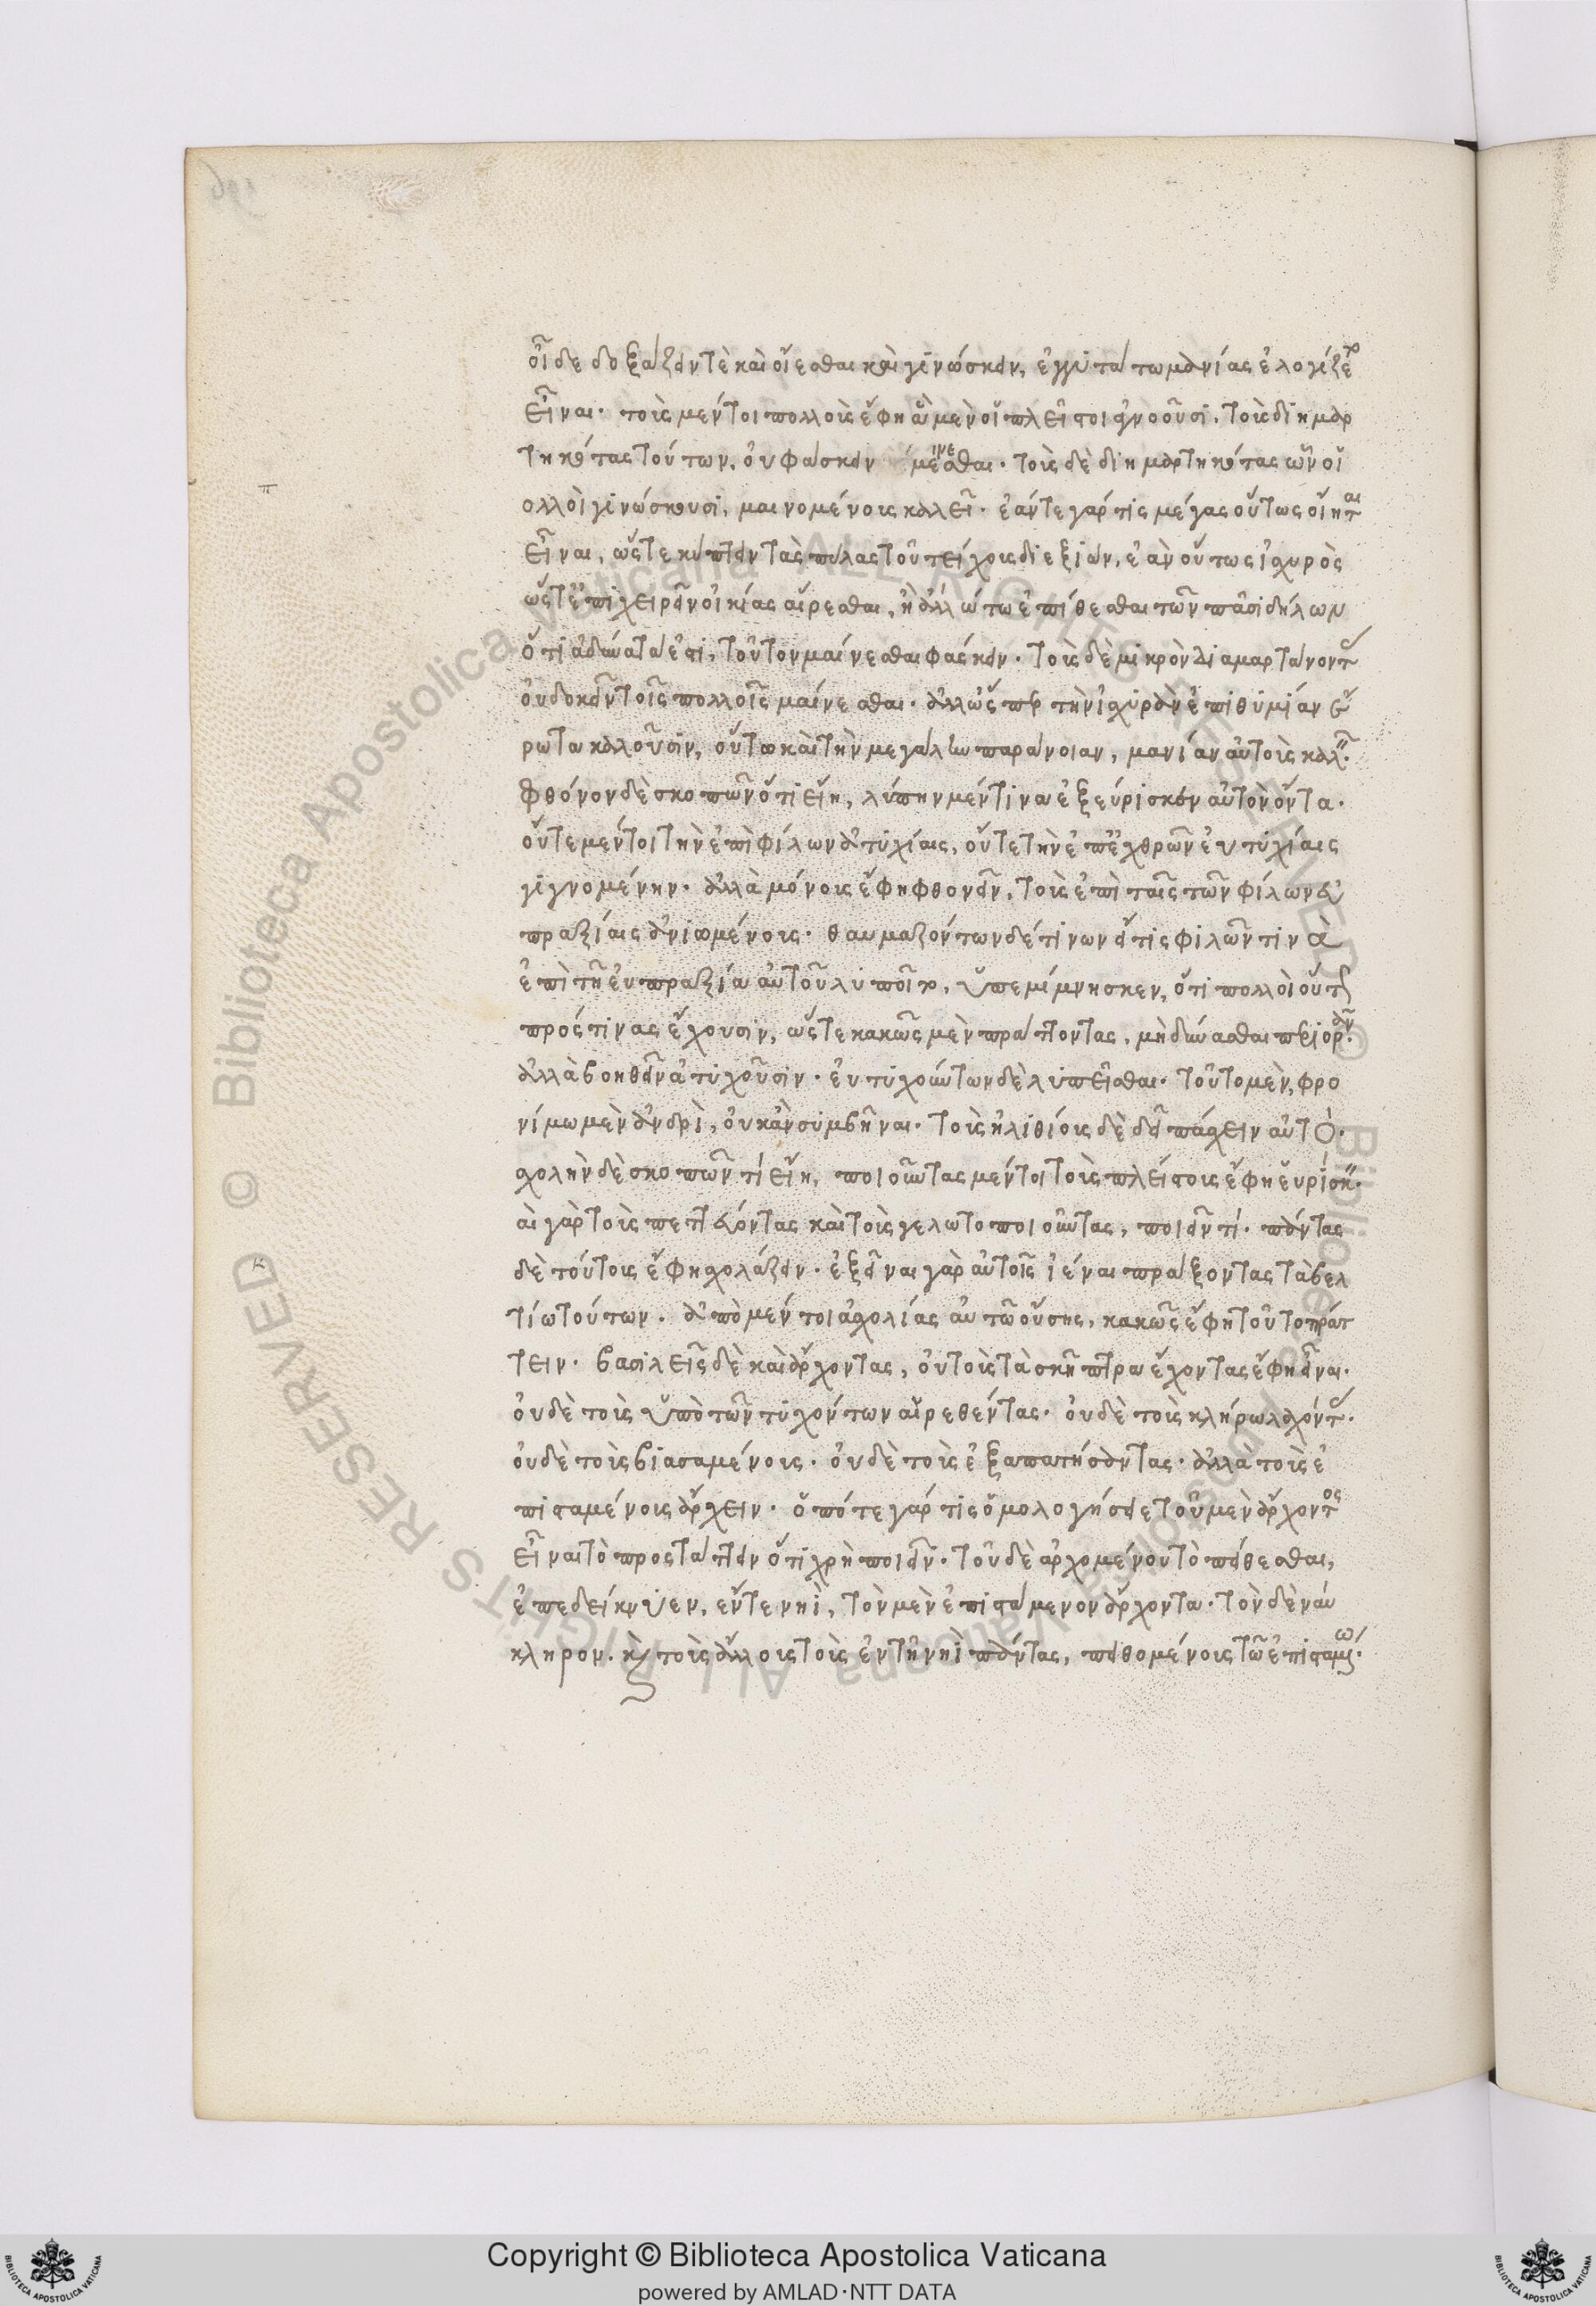 οἶδε δοξάζειν τὲ καὶ οἴεσθαι καὶ γινώσκειν, ἐγγυτάτω μανίας ἐλογίζετο
εἶναι. τοὺς μέντοι πολλοὺς ἔφη ἃ μὲν οἱ πλεῖστοι ἀγνοοῦσι, τοὺς διημαρ
τηκότας τούτων, οὐ φάσκειν μαίνεσθαι. τοὺς δὲ διημαρτηκότας ὧν οἱ
ολλοὶ γινώσκουσι, μαινομένους καλεῖ. ἐάν τε γάρ τις μέγας οὕτως οἴηται
εἶναι, ὥστε κύπτειν τὰς πύλας τοῦ τείχους διεξιών, ἐὰν οὕτως ἰσχυρὸς
ὥστ' ἐπιχειρεῖν οἰκίας αἴρεσθαι, ἢ ἄλλω τω ἐπίθεσθαι τῶν πᾶσι δήλων
ὅτι ἀδύνατά ἐστι, τοῦτον μαίνεσθαι φάσκειν. τοὺς δὲ μικρὸν διαμαρτάνοντας
οὐ δοκεῖν τοῖς πολλοῖς μαίνεσθαι. ἀλλ' ὥσπερ τὴν ἰσχυρὰν ἐπιθυμίαν ἔ
ρωτα καλοῦσιν, οὕτω καὶ τὴν μεγάλην παράνοιαν, μανίαν αὐτοὺς καλεῖν.
Φθόνον δὲ σκοπῶν ὅτι εἴη, λύπην μέν τινα ἐξεύρισκεν αὐτὸν ὄντα.
οὔτε μέντοι τὴν ἐπὶ φίλων ἀτυχίαις, οὔτε τὴν ἐπ' ἐχθρῶν εὐτυχίαις
γιγνομένην. ἀλλὰ μόνους ἔφη φθονεῖν, τοὺς ἐπὶ ταῖς τῶν φίλων εὐ
πραξίαις ἀνιωμένους. θαυμαζόντων δέ τινων εἴ τις φιλῶν τινὰ
ἐπὶ τῆ εὐπραξία αὐτοῦ λυποῖτο, ὑπεμίμνησκεν, ὅτι πολλοὶ οὕτως
πρός τινας ἔχουσιν, ὥστε κακῶς μὲν πράττοντας, μὴ δύνασθαι περιορᾶν.
ἀλλὰ βοηθεῖν ἀτυχοῦσιν. εὐτυχούντων δὲ λυπεῖσθαι. τοῦτο μὲν, φρο
νίμω μὲν ἀνδρὶ, οὐκ ἂν συμβῆναι. τοὺς ἠλιθίους δὲ ἀεὶ πάσχειν αὐτό.
σχολὴν δὲ σκοπῶν τί εἴη, ποιοῦντας μέντοι τοὺς πλείστους ἔφη εὑρίσκειν.
αἱ γὰρ τοὺς πεττεύοντας καὶ τοὺς γελωτοποιοῦντας, ποιεῖν τί. πάντας
δὲ τούτους ἔφη σχολάζειν. ἐξεῖναι γὰρ αὐτοῖς ἰέναι πράξοντας τὰ βελ
τίω τούτων. ἀπὸ μέν τοι ἀσχολίας αὐτῶ οὔσης, κακῶς ἔφη τοῦτο πράτ
τειν. βασιλεῖς δὲ καὶ ἄρχοντας, οὐ τοὺς τὰ σκῆπτρα ἔχοντας ἔφη εἶναι.
οὐδὲ τοὺς ὑπὸ τῶν τυχόντων αἱρεθέντας. οὐδὲ τοὺς κλήρω λαχόντας.
οὐδὲ τοὺς βιασαμένους. οὐδὲ τοὺς ἐξαπατήσαντας. ἀλλὰ τοὺς ἐ
πισταμένους ἄρχειν. ὁπότε γάρ τις ὁμολογήσειε τοῦ μὲν ἄρχοντος
εἶναι τὸ προστάττειν ὅτι χρὴ ποιεῖν. τοῦ δὲ ἀρχομένου τὸ πείθεσθαι,
ἐπεδείκνυεν, ἔν τε νηῒ, τὸν μὲν ἐπιστάμενον ἄρχοντα. τὸν δὲ ναύ
κληρον. καὶ τοὺς ἄλλους τοὺς ἐν τῆ νηῒ πάντας, πειθομένους τῶ ἐπισταμένω.